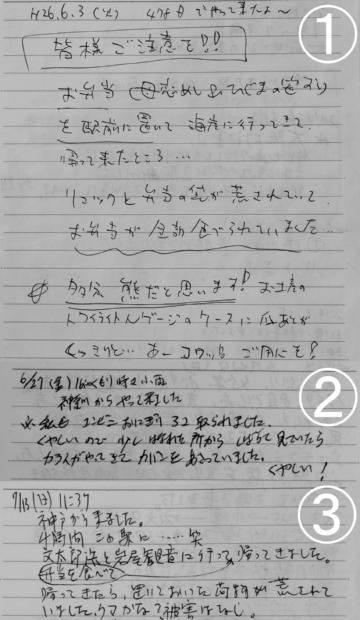 ①
H26.6.3(火) 47才 ♂ でやって来たよ〜
皆様ご注意を!!
お弁当(母恋めし
を駅前に置いて海岸に行ってきて、
帰って来たところ…
リュックと弁当の袋が荒されていて
お弁当が全部食べられていました…
多分熊だと思います!! お土産の
トワイライトの ケースに爪あとが
くっきりと… あー コワッ!! ご用心を!
②
6/27(金)
神奈川からやって来ました
※ 私もコンビニおにぎり3コ取られました。
くやしいので少しはなれた所からしばらく見ていたら
カラスがやってきてカバンをあさっていました。
くやしい!
③
7/13(日) 11:37
神戸から来ました。
4時間この駅に……笑
文太郎浜と岩屋観音に行って、帰ってきました。
弁当を食べて
帰ってきたら、置いておいた荷物が荒されて
いました。クマかな?被害はなし。